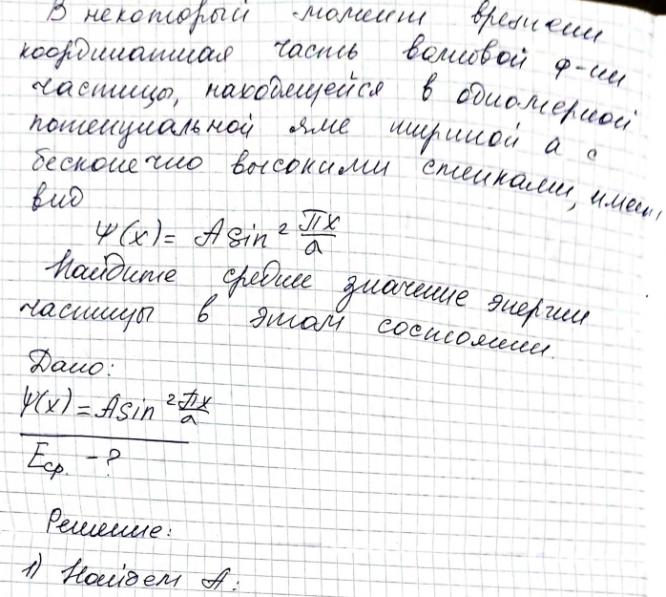 В некоторый момент времени
координатная часть волновой ф-ии
частицы, находящейся в одномерной
потенциальной яме шириной а с
бесконечно высокими стенками, имеет
вид
Ψ(x) = A sin² πx/a
Найдите среднее значение энергии
частицы в этом состоянии.
Дано:
Ψ(x) = A sin² πx/a
Eср. - ?
Решение:
1) Найдем A: